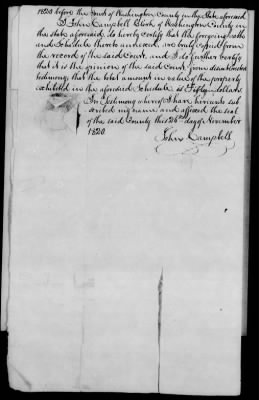 1820 before the Court of Washington County in the State aforesaid
I, John Campbell Clerk of Washington County in
the state aforesaid, do hereby certify that the foregoing oath
and Schedule thereto annexed, are truly copied from
the record of the said Court, and I do further certify
that it is the opinion of the said Court from
testimony, that the total amount in value of the property
exhibited in the aforesaid Schedule is Fifty dollars.
In Testimony whereof I have hereunto sub
scribed my name and affixed the seal
of the said County this 26th day of November
1820.
John Campbell